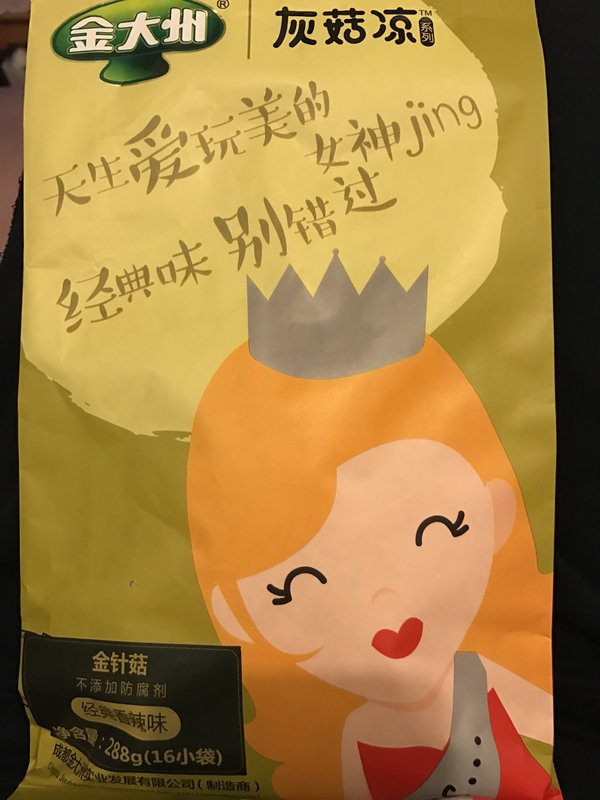 金大州®
灰菇凉™系列
天生爱玩美的
女神jing
经典味 别错过
金针菇
不添加防腐剂
经典香辣味
净含量:288g(16小袋)
成都金大州实业发展有限公司(制造商)